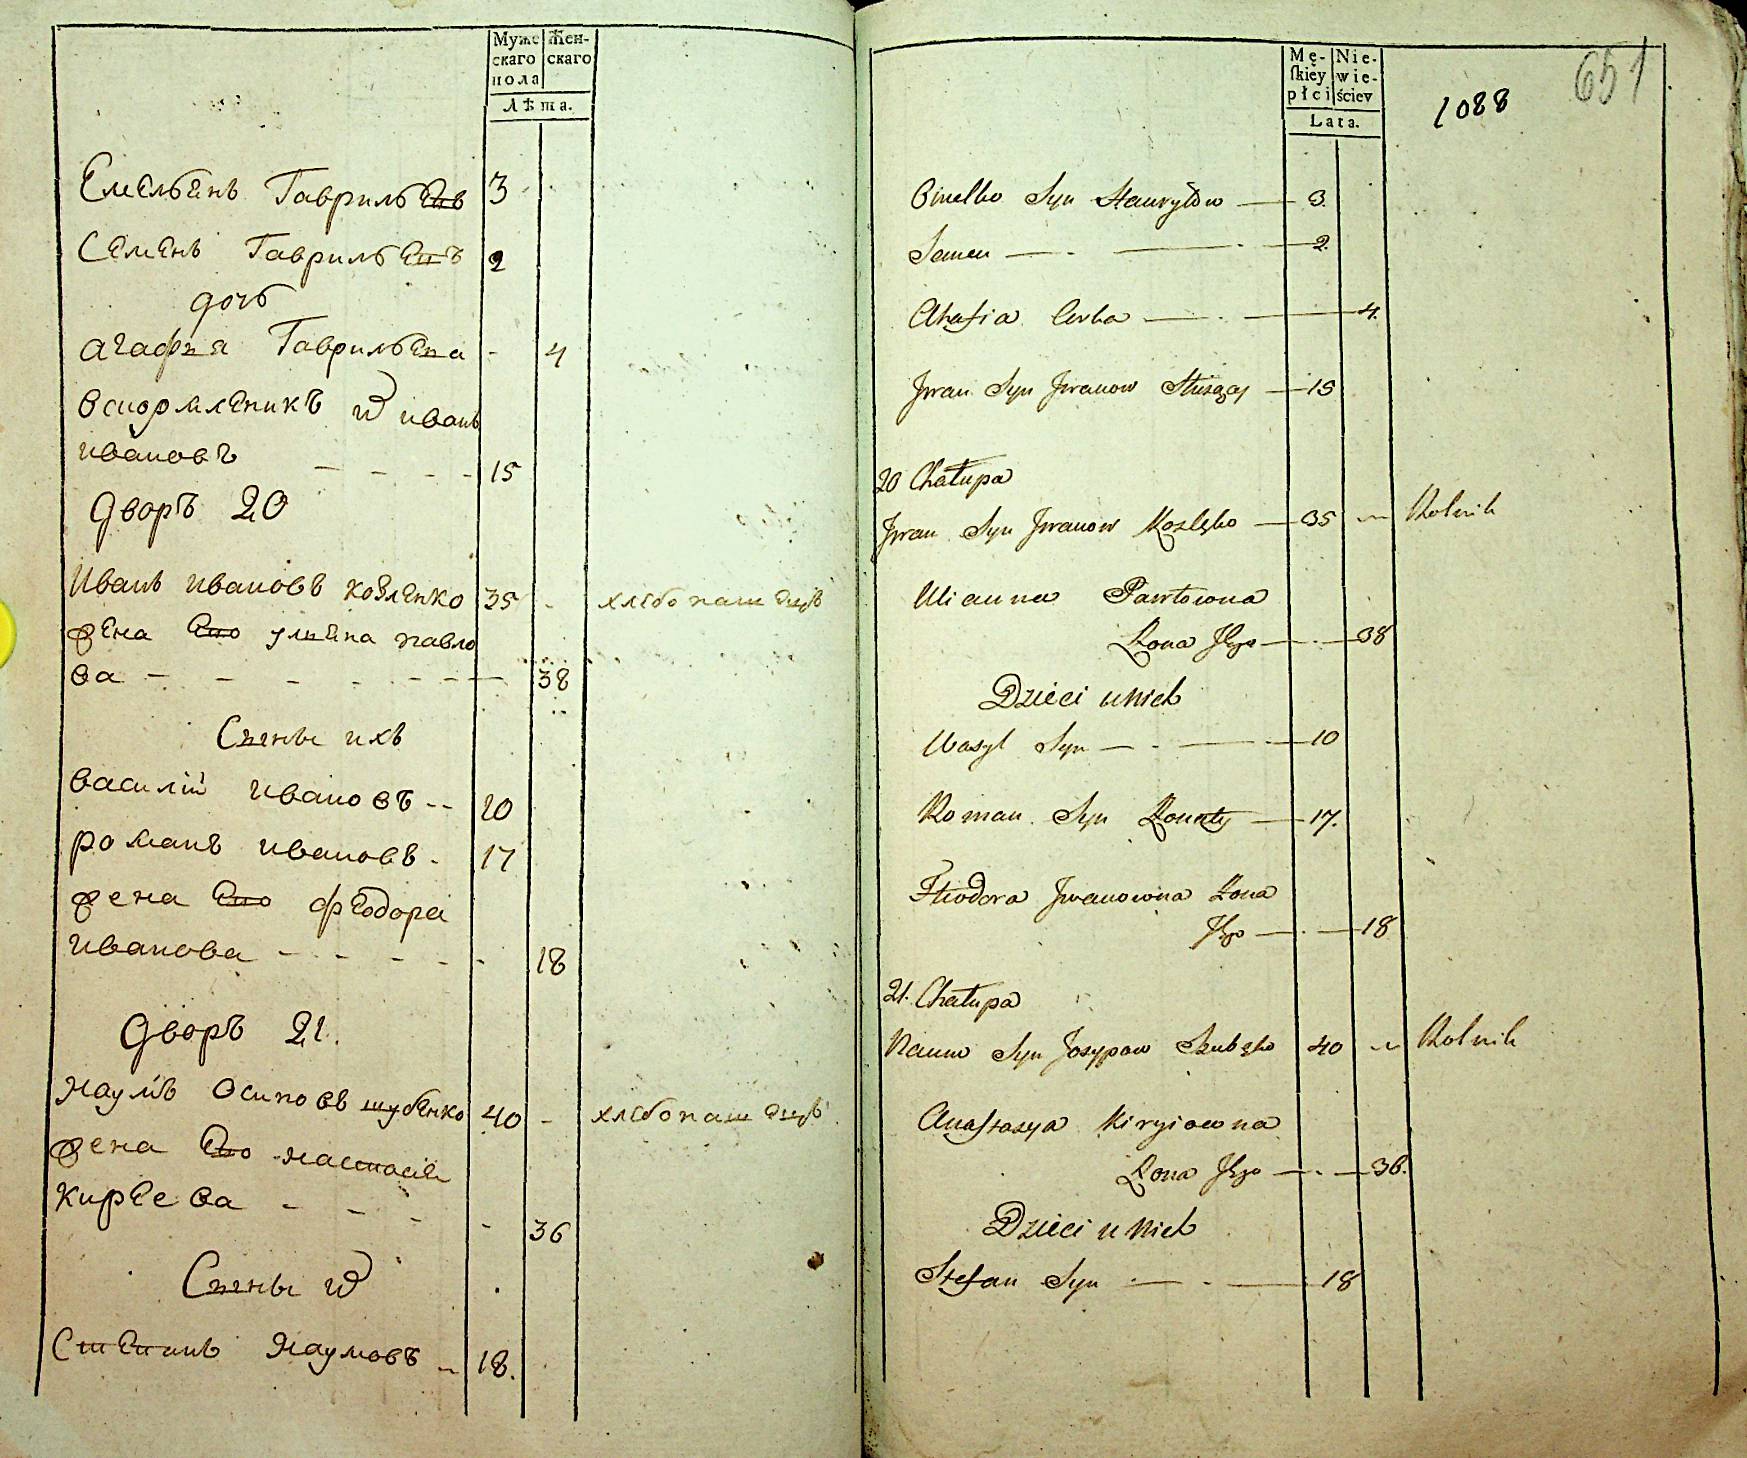 Муже
скаго
пола
Жен-
скаго
Лѣта.
Емельянъ Гаврильевъ 3
Семенъ Гаврильевъ 2
дочь
агафия Гаврильева - 4
вскормленикъ иванъ
ивановъ - - - - 15
Дворъ 20
Иванъ ивановъ козленко 35 - хлебопашецъ
жена ево улияна павло
ва - - - - - - - 38
Сыны ихъ
василій ивановъ -- 10
романъ ивановъ - 17
жена ево феодора
иванова - - - - - 18
Дворъ 21.
Наумъ Осиповъ шубенко 40 - хлебопашецъ
жена ево настасия
киреева - - - - 36
Сыны
Степанъ Наумовъ - 18.
Mę-
skiey
płci
Nie-
wie-
ściey
Lata.
1088
651
Syn Hawryłow — 3.
Semen — . — . — 2.
Ahafia Corka — . — 4.
Jwan Syn Jwanow Służący — 15
20 Chałupa
Jwan Syn Jwanow Kozlęko — 35 — Rolnik
Ulianna Pawłowna
Żona Jego — . — 38
Dzieci u Nich
Wasyl Syn — . — . — 10
Roman Syn Żonaty — 17.
Fheodora Jwanowna Żona
Jego — . — 18
21. Chałupa
Naum Syn Josypow Szubęko 40 — Rolnik
Anastazya Kiryiowna
Żona Jego — . — 36.
Dzieci u Nich
Stefan Syn — . — 18